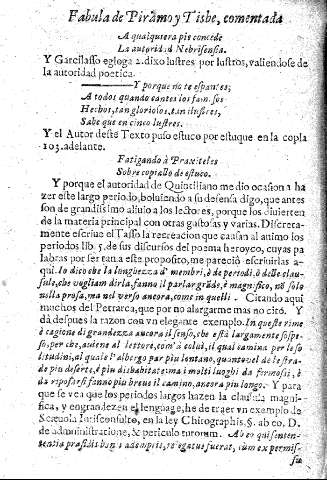 Fabula de Piramo y Tisbe, comentada
A qualquiera pie concede
La autoridad Nebrisensia.
Y Garcilasso egloga 2. dixo lustres por lustros, valiendose de
la autoridad poetica.
Y porque no te espantes,
A todos quando cantes los famosos
Hechos, tan gloriosos, tan ilustres,
Sabe que en cinco lustres.
Y el Autor deste Texto puso estuco por estuque en la copla
103. adelante.
Fatigando à Praxiteles
Sobre copiallo de estuco.
Y porque el autoridad de Quintiliano me dio ocasion a ha
zer este largo periodo, boluiendo a su defensa digo, que antes
son de grandissimo aliuio a los lectores, porque los diuierten
de la materia principal con otras gustosas y varias. Discreta-
mente escriue el Tasso la recreacion que causan al animo los
periodos lib. 5. de sus discursos del poema heroyco, cuyas pa
labras por ser tan a este proposito, me pareciò escriuirlas a-
qui. Io dico che la longhezza d' membri, ò de periodi, ò delle clau-
sule, che vogliam dirla, fanno il parlar gräde, è magnifico, nõ solo
nella prosa, ma nel verso ancora, come in quelli. Citando aqui
muchos del Petrarca, que por no alargarme mas no cito. Y
dà despues la razon con vn elegante exemplo. In queste rime
è cagione di grandezza ancora il senso, che està largamente sospe-
so, per che, auiene al lettore, com' à colui, il qual camina per le so
litudini, al quale l' albergo par piu lontano, quanto vel de le stra-
de piu deserte, è piu dishabitate: ma i molti luoghi da fermossi, è
da riposarsi fanno piu breue il camino, ancora piu longo. Y para
que se vea que los periodos largos hazen la clausula magni-
fica, y engrandezen el lenguage, he de traer vn exemplo de
Scæuola Iurisconsulto, en la ley Chirographis, §. ab eo, D.
de administratione, & periculo tutorum. Ab eo qui senten-
tentia præsidis bonis ademptis, relegatus fuerat, cum ex permis-
su